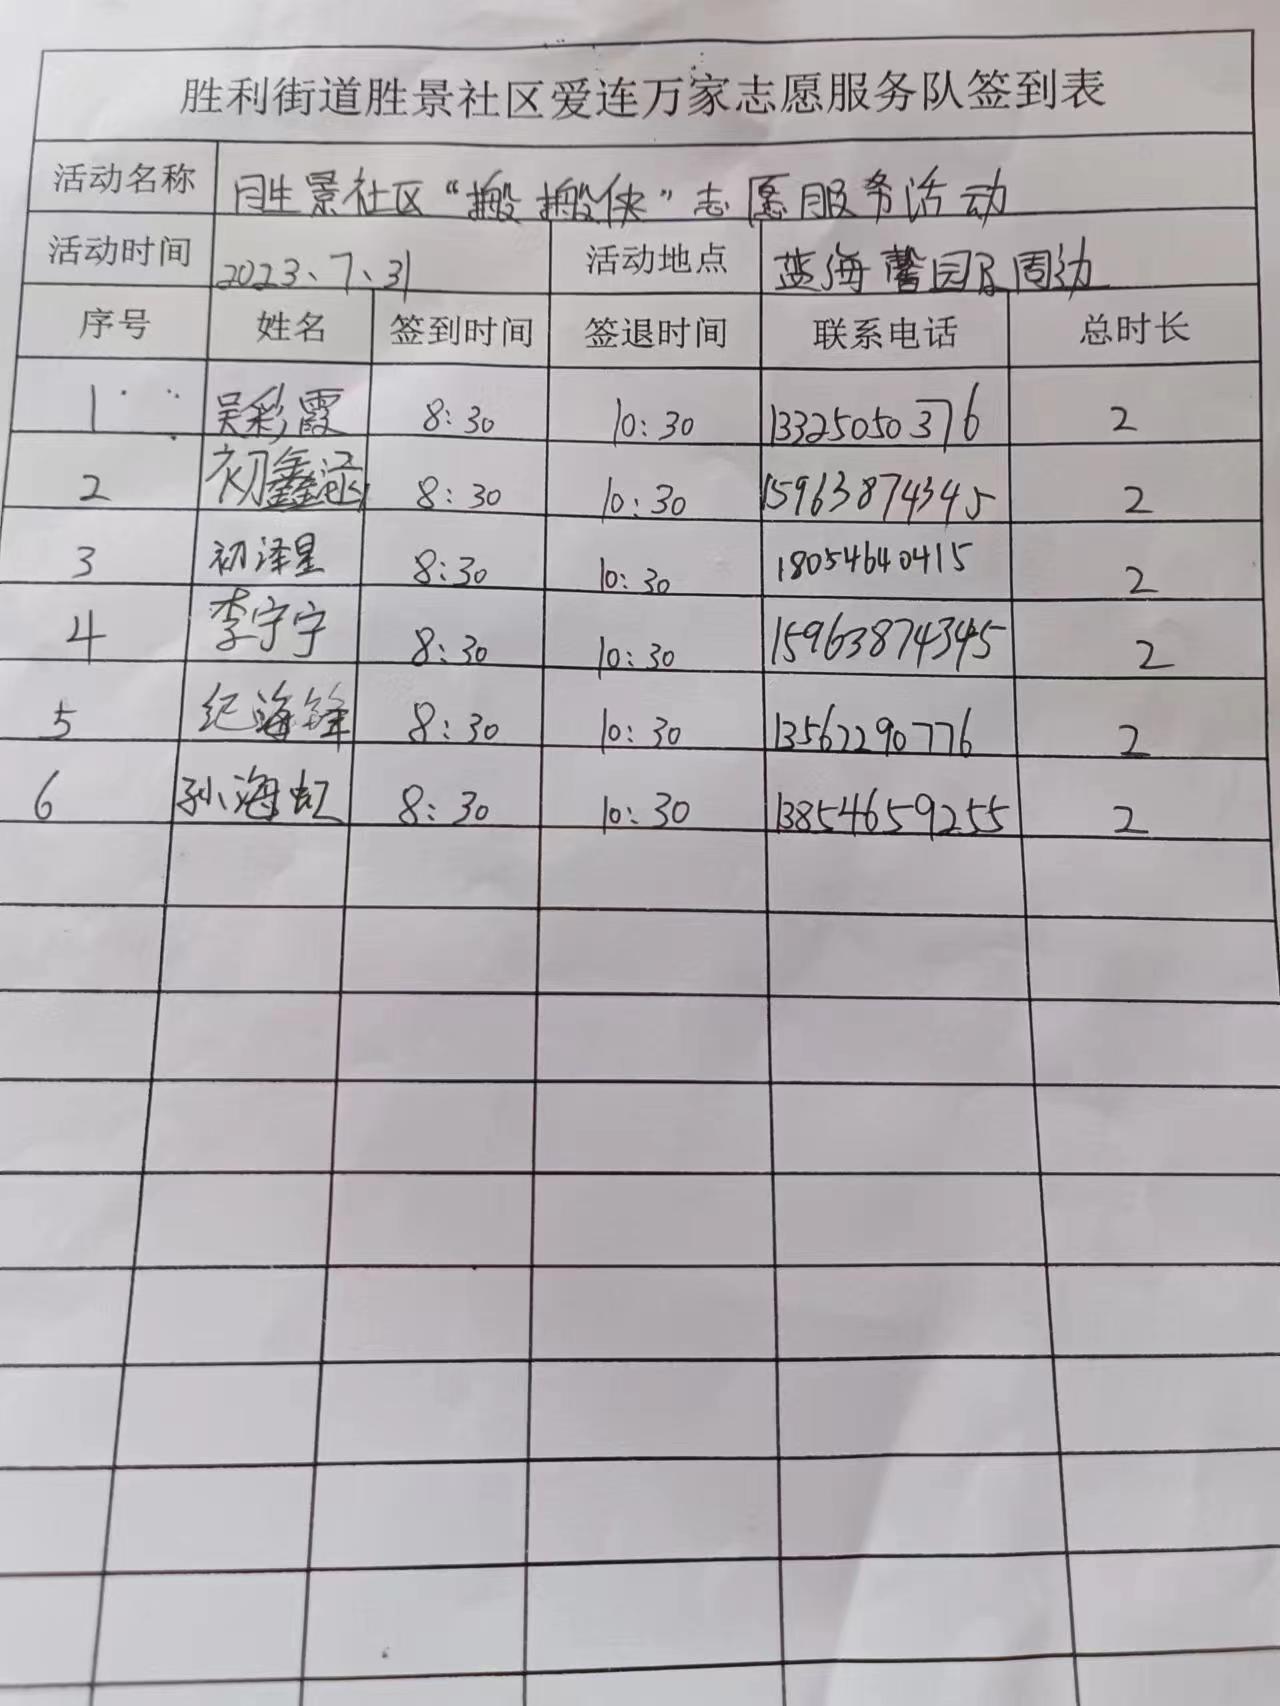 胜利街道胜景社区爱连万家志愿服务队签到表
活动名称 胜景社区“搬搬侠”志愿服务活动
活动时间 2023、7、31 活动地点 蓝海馨园及周边
序号 姓名 签到时间 签退时间 联系电话 总时长
1 吴彩霞 8:30 10:30 13325050376 2
2 初鑫涵 8:30 10:30 15963874345 2
3 初泽星 8:30 10:30 18054640415 2
4 李宁宁 8:30 10:30 15963874345 2
5 纪海锋 8:30 10:30 13562290776 2
6 孙海虹 8:30 10:30 13854659255 2